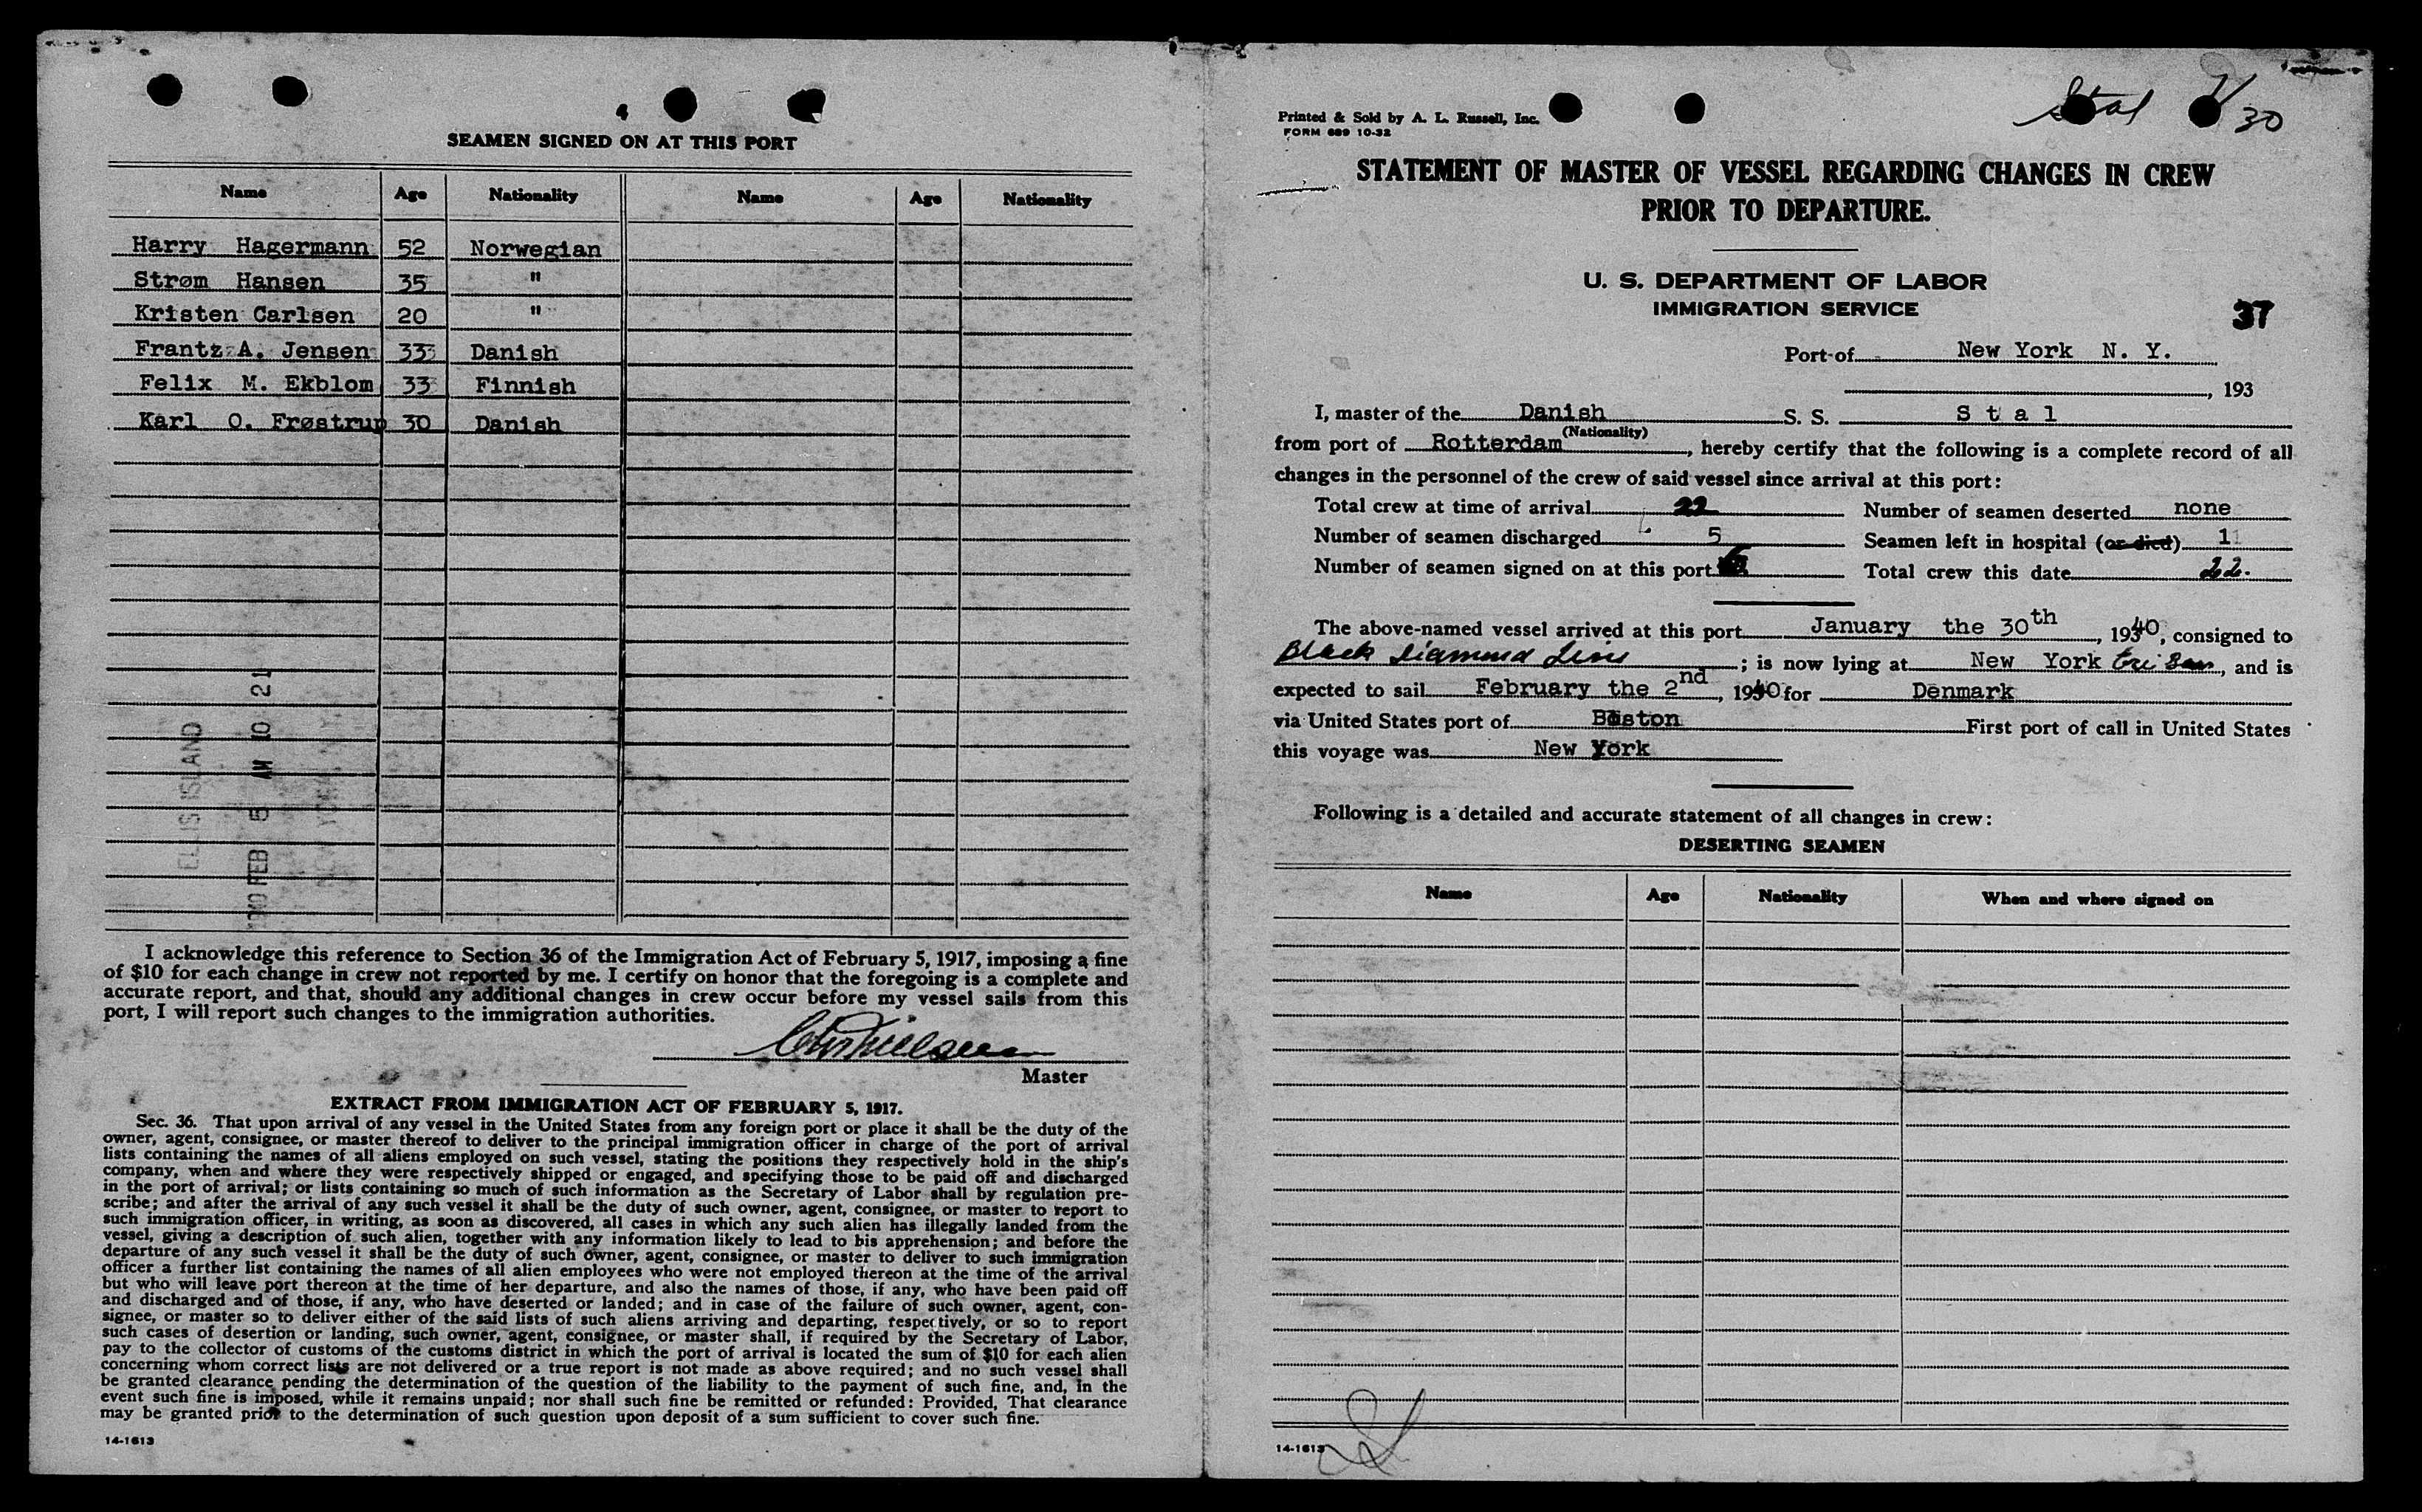 4
SEAMEN SIGNED ON AT THIS PORT
Name Age Nationality Name Age Nationality
Harry Hagermann 52 Norwegian
Strøm Hansen 35 "
Kristen Carlsen 20 "
Frantz A. Jensen 33 Danish
Felix M. Ekblom 33 Finnish
Karl O. Frøstrup 30 Danish
ELLIS ISLAND
1940 FEB 5 AM 10 21
I acknowledge this reference to Section 36 of the Immigration Act of February 5, 1917, imposing a fine
of $10 for each change in crew not reported by me. I certify on honor that the foregoing is a complete and
accurate report, and that, should any additional changes in crew occur before my vessel sails from this
port, I will report such changes to the immigration authorities.
Master
EXTRACT FROM IMMIGRATION ACT OF FEBRUARY 5, 1917.
Sec. 36. That upon arrival of any vessel in the United States from any foreign port or place it shall be the duty of the
owner, agent, consignee, or master thereof to deliver to the principal immigration officer in charge of the port of arrival
lists containing the names of all aliens employed on such vessel, stating the positions they respectively hold in the ship's
company, when and where they were respectively shipped or engaged, and specifying those to be paid off and discharged
in the port of arrival; or lists containing so much of such information as the Secretary of Labor shall by regulation pre-
scribe; and after the arrival of any such vessel it shall be the duty of such owner, agent, consignee, or master to report to
such immigration officer, in writing, as soon as discovered, all cases in which any such alien has illegally landed from the
vessel, giving a description of such alien, together with any information likely to lead to his apprehension; and before the
departure of any such vessel it shall be the duty of such owner, agent, consignee, or master to deliver to such immigration
officer a further list containing the names of all alien employees who were not employed thereon at the time of the arrival
but who will leave port thereon at the time of her departure, and also the names of those, if any, who have been paid off
and discharged and of those, if any, who have deserted or landed; and in case of the failure of such owner, agent, con-
signee, or master so to deliver either of the said lists of such aliens arriving and departing, respectively, or so to report
such cases of desertion or landing, such owner, agent, consignee, or master shall, if required by the Secretary of Labor,
pay to the collector of customs of the customs district in which the port of arrival is located the sum of $10 for each alien
concerning whom correct lists are not delivered or a true report is not made as above required; and no such vessel shall
be granted clearance pending the determination of the question of the liability to the payment of such fine, and, in the
event such fine is imposed, while it remains unpaid; nor shall such fine be remitted or refunded: Provided, That clearance
may be granted prior to the determination of such question upon deposit of a sum sufficient to cover such fine.
14-1613
Stal 1/30
Printed & Sold by A. L. Russell, Inc.
FORM 689 10-32
STATEMENT OF MASTER OF VESSEL REGARDING CHANGES IN CREW
PRIOR TO DEPARTURE.
U. S. DEPARTMENT OF LABOR
IMMIGRATION SERVICE
37
Port of New York N. Y.
, 193
I, master of the Danish S. S. Stal
(Nationality)
from port of Rotterdam, hereby certify that the following is a complete record of all
changes in the personnel of the crew of said vessel since arrival at this port:
Total crew at time of arrival 22 Number of seamen deserted none
Number of seamen discharged 5 Seamen left in hospital (or died) 1
Number of seamen signed on at this port 6 Total crew this date 22.
The above-named vessel arrived at this port January the 30th, 1940, consigned to
Black Diamond Line; is now lying at New York Erie Bsn, and is
expected to sail February the 2nd, 1940 for Denmark
via United States port of Boston First port of call in United States
this voyage was New York
Following is a detailed and accurate statement of all changes in crew:
DESERTING SEAMEN
Name Age Nationality When and where signed on
14-1613